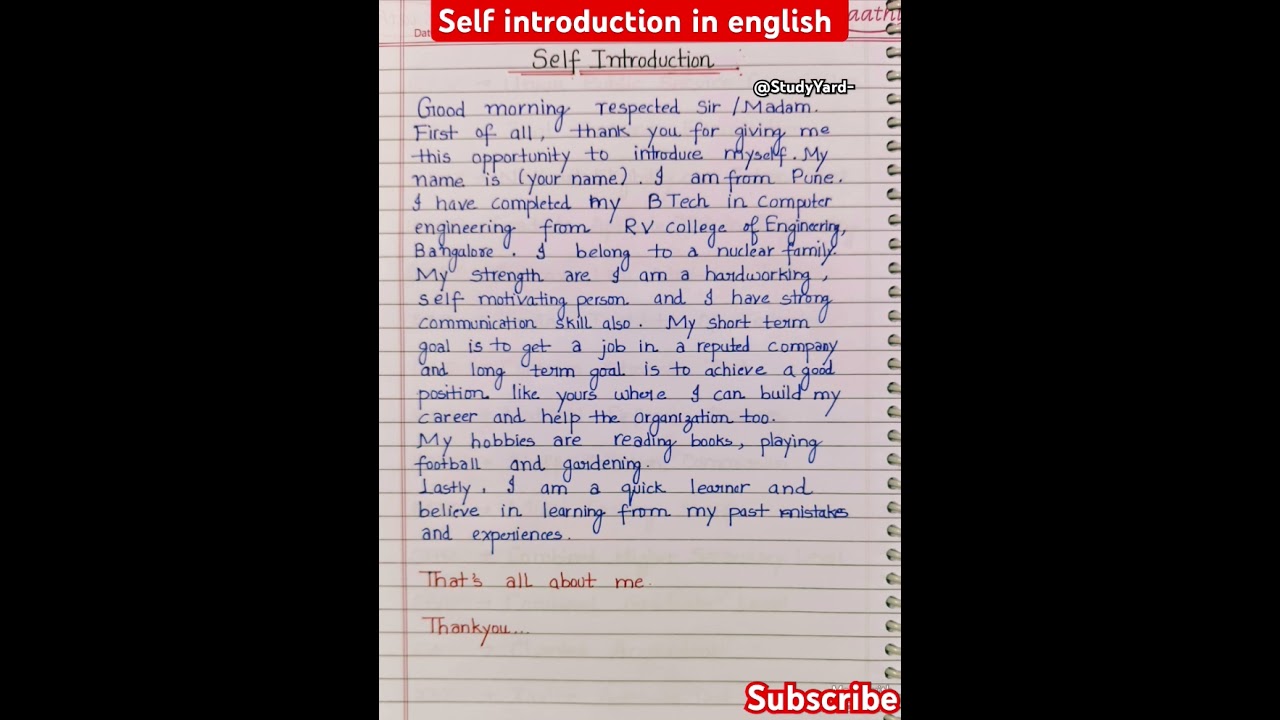 Self introduction in english
aathi
Dat
Self Introduction
@StudyYard-
Good morning respected Sir / Madam.
First of all, thank you for giving me
this opportunity to introduce myself. My
name is (your name). I am from Pune.
I have completed my B Tech in Computer
engineering from RV College of Engineering,
Bangalore. I belong to a nuclear family.
My strength are I am a hardworking,
self motivating person and I have strong
communication skill also. My short term
goal is to get a job in a reputed company
and long term goal is to achieve a good
position like yours where I can build my
career and help the organization too.
My hobbies are reading books, playing
football and gardening.
Lastly, I am a quick learner and
believe in learning from my past mistakes
and experiences.
That's all about me.
Thankyou...
Subscribe